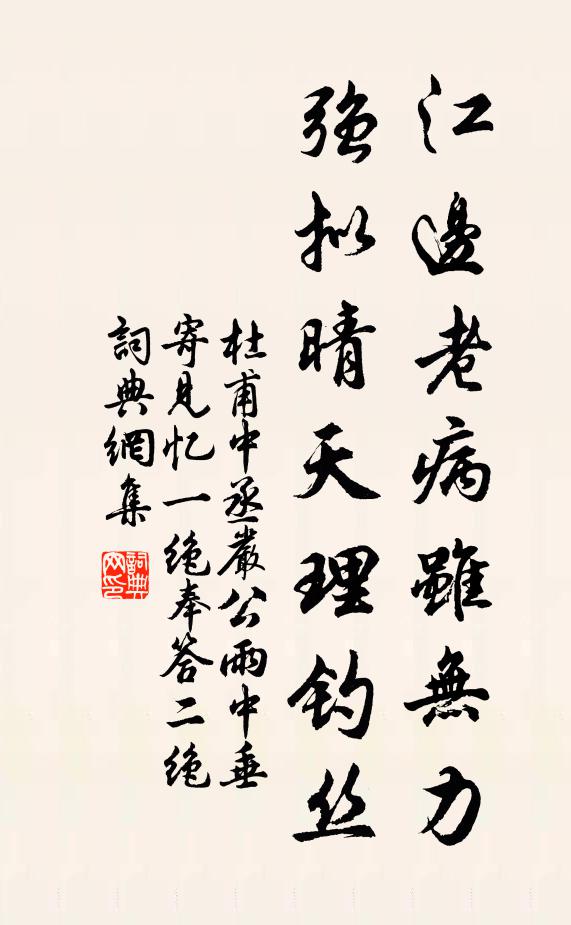 江邊老病雖無力
強拟晴天理钓丝
杜甫中丞嚴公雨中垂
寄見忆一绝奉答二绝
詞典網集
詞典
网印